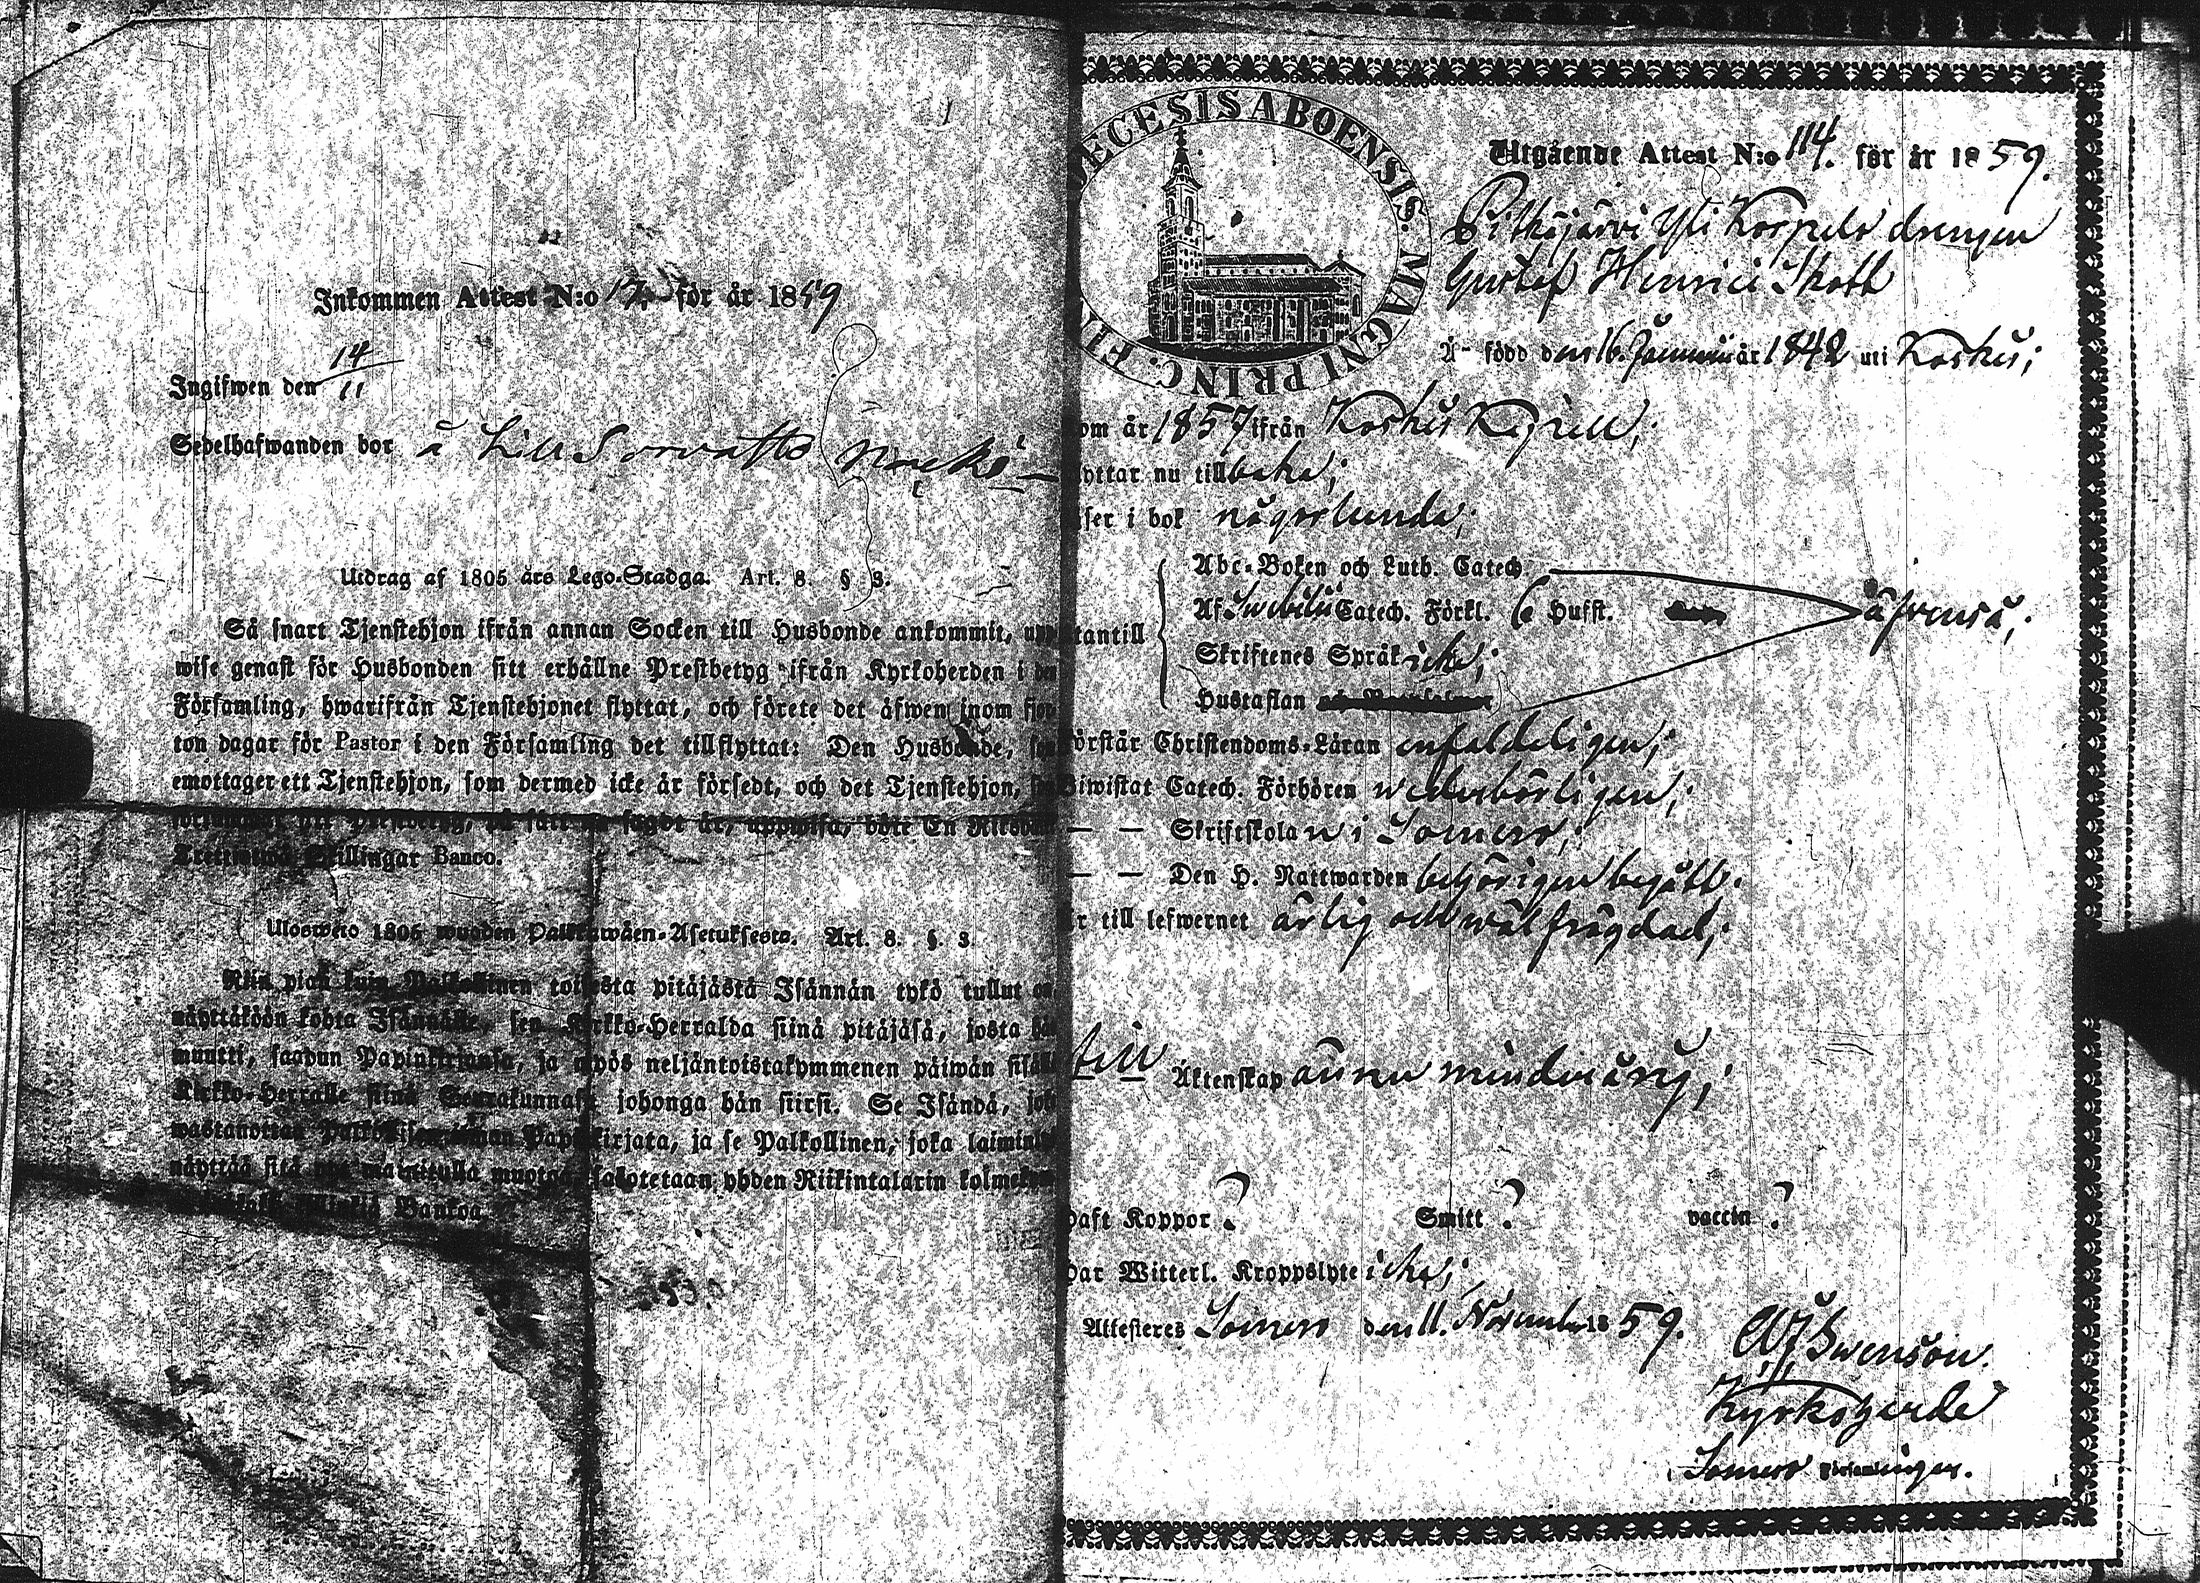 Inkommen Attest N:o 17. för år 1859
Ingifwen den 14/11
Sedelhafwanden bor å Lill Sorvasto
Utdrag af 1805 års Lego-Stadga. Art. 8. § 3.
Så snart Tjenstehjon ifrån annan Socken till Husbonde ankommit, upp
wise genast för Husbonden sitt erhållne Prestbetyg ifrån Kyrkoherden i den
Församling, hwarifrån Tjenstehjonet flyttat, och förete det åfwen inom fjor
ton dagar för Pastor i den Församling det tillflyttat: Den Husbonde, som
emottager ett Tjenstehjon, som dermed icke är försedt, och det Tjenstehjon, som
sitt Prestbetyg, på sätt nu sagdt är, uppwisa, böte En Riksdaler
Trettiotwå Skillingar Banco.
Ulosweto 1805 wuoden Palkkawäen-Asetuksesta. Art. 8. §. 3.
Niin pian kuin Palkollinen toisesta pitäjästä Isännän tykö tullut on
näyttäköön kohta Isännälle, sen Kirkko-Herralda siinä pitäjäsä, josta hän
muutti, saadun Papinkirjansa, ja myös neljäntoistakymmenen päiwän sisällä
Kirkko-Herralle siinä Seurakunnasa johonga hän siirsi. Se Isändä, joka
wastanottaa Palkollisen ilman Papinkirjata, ja se Palkollinen, joka laiminlyö
näyttää sitä nyt mainitulla muotoa, sakotetaan yhden Riikintalarin kolmekym
Killingiä Bankoa.
DIOECESIS ABOENSIS. MAGNI PRINC. FI
Utgående Attest N:o 114. för år 1859.
Pitkäjärvi Yli Korpela drengen
Gustaf Henrici Skott
Ä- född den 16. Januarii år 1842 uti Koskis;
om år 1857 ifrån Koskis Kapell;
lyttar nu tillbaka;
äser i bok någorlunda;
tantill
Abc-Boken och Luth. Catech.
Af Swebilii Catech. Förkl. Hufst.
äfvenså;
Skriftenes Språk icke;
Hustaflan
örstår Christendoms-Läran enfaldeligen;
Biwistat Catech. Förhören wederbörligen;
— — Skriftskolan i Somero;
— — Den H. Nattwarden behörigen begått.
r till lefwernet ärlig och wälfrägdad;
till Äktenskap ännu minderårig;
haft Koppor ? Smitt ? vaccin ?
har Witterl. Kroppslyte icke;
Attesteres Somero den 11. November 1859.
Swenson.
Kyrkoherde
Somero Församlingen.